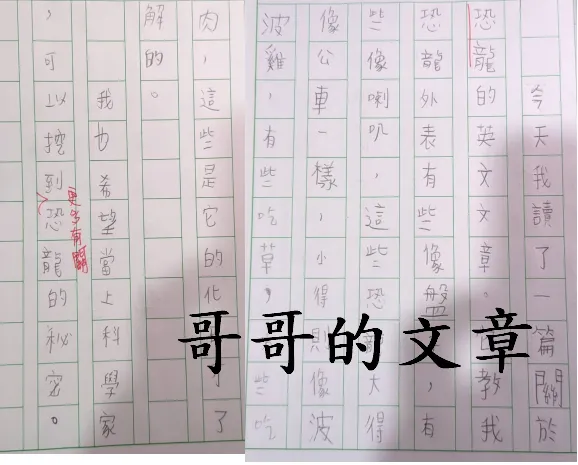 今天我讀了一篇關於
恐龍的英文文章。教我
恐龍外表有些像盤，有
些像喇叭，這些恐龍大得
像公車一樣，小得則像波
波雞，有些吃草，些吃
肉，這些是它的化了
解的。
我也希望當上科學家
，可以挖到恐龍的秘密。
更多有關
哥哥的文章